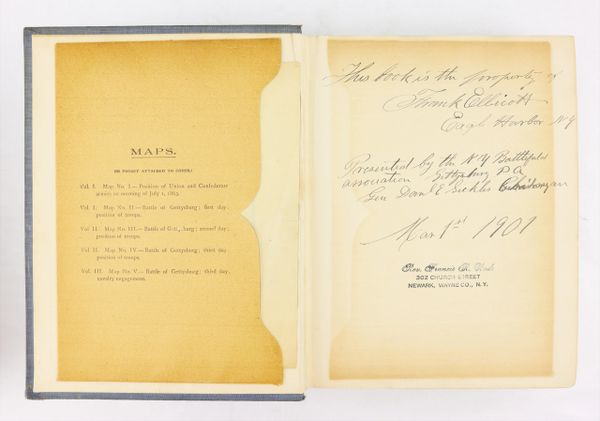 MAPS.
(IN POCKET ATTACHED TO COVER.)
Vol. I. Map No. I.—Position of Union and Confederate
armies on morning of July 1, 1863.
Vol. I. Map No. II.—Battle of Gettysburg; first day;
position of troops.
Vol II. Map No. III.—Battle of Get burg; second day;
position of troops.
Vol. II. Map No. IV.—Battle of Gettysburg; third day
position of troops.
Vol. III. Map No. V.—Battle of Gettysburg; third day,
cavalry engagements.
This book is the property of
Frank Ellicott
Eagle Harbor N Y
Presented by the N Y Battlefield
association Gettysburg P A
Gen Danl E Sickles
Mar 1st 1901
Rev. Francis
302 CHURCH STREET
NEWARK, WAYNE CO., N. Y.